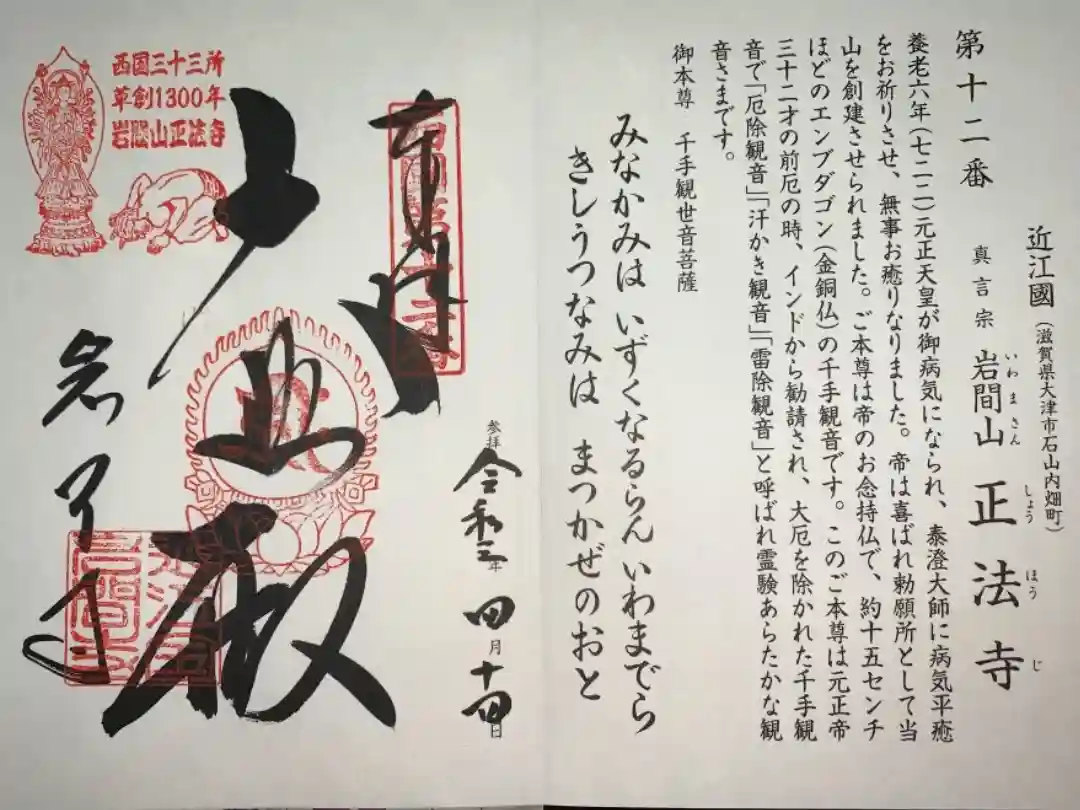 近江國(滋賀県大津市石山内畑町)
真言宗 岩間山 正法寺
いわまさん しょうほうじ
第十二番
養老六年(七二二)元正天皇が御病気になられ、泰澄大師に病気平癒
をお祈りさせ、無事お癒りなりました。帝は喜ばれ勅願所として当
山を創建させられました。ご本尊は帝のお念持仏で、約十五センチ
ほどのエンブダゴン(金銅仏)の千手観音です。このご本尊は元正帝
三十二才の前厄の時、インドから勧請され、大厄を除かれた千手観
音で「厄除観音」「汗かき観音」「雷除観音」と呼ばれ霊験あらたかな観
音さまです。
御本尊 千手観世音菩薩
みなかみは いずくなるらん いわまでら
きしうつなみは まつかぜのおと
参拝 令和 年 四月 十四日
奉拝
西国第十二番
大悲殿
岩間寺
西国三十三所
草創1300年
岩間山正法寺